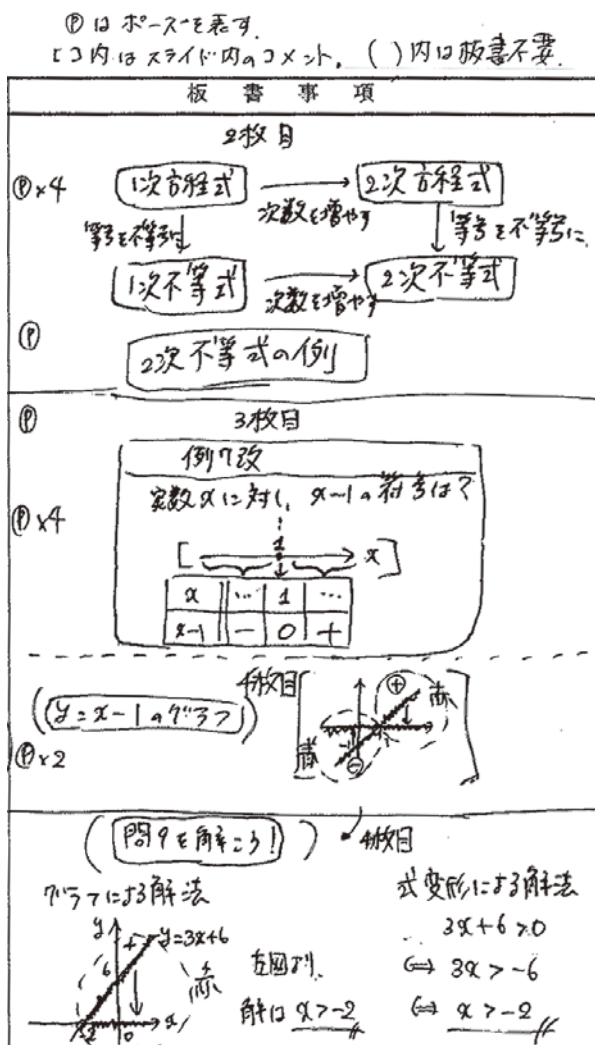 Ⓟはポーズを表す.
[ ]内はスライド内のコメント. ( )内は板書不要.
板書事項
2枚目
Ⓟ×4
1次方程式 → 2次方程式
次数を増やす
等号を不等号に ↓ ↓ 等号を不等号に.
1次不等式 → 2次不等式
次数を増やす
Ⓟ
2次不等式の例
Ⓟ
3枚目
例7改
Ⓟ×4
実数xに対し, x-1の符号は?
1
[ → x ]
x … 1 …
x-1 - 0 +
4枚目
(y=x-1のグラフ)
Ⓟ×2
⊕ 赤
青 ⊖
(問9を解こう!) 4枚目
グラフによる解法
式変形による解法
y + y=3x+6
6 赤
-2 0 x
左図より,
解は x>-2
3x+6>0
⇔ 3x>-6
⇔ x>-2